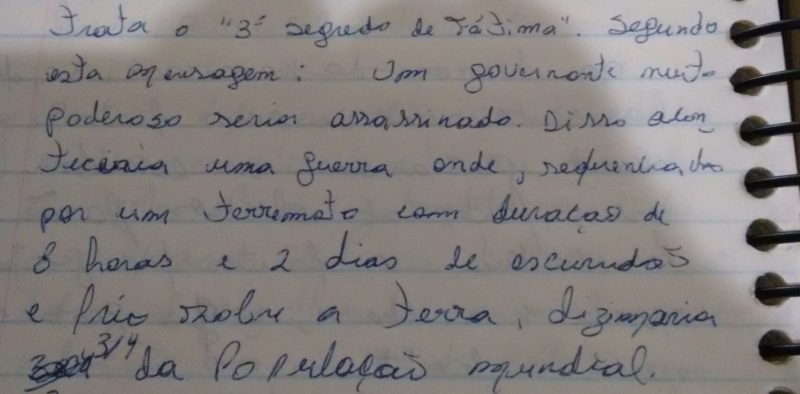 Trata o "3º segredo de Fátima". Segundo
esta mensagem: Um governante muito
poderoso seria assassinado. Disso acon
teceria uma guerra onde, sequenciado
por um terremoto com duração de
8 horas e 2 dias de escuridão
e frio sobre a terra, dizimaria
3/4 da População mundial.